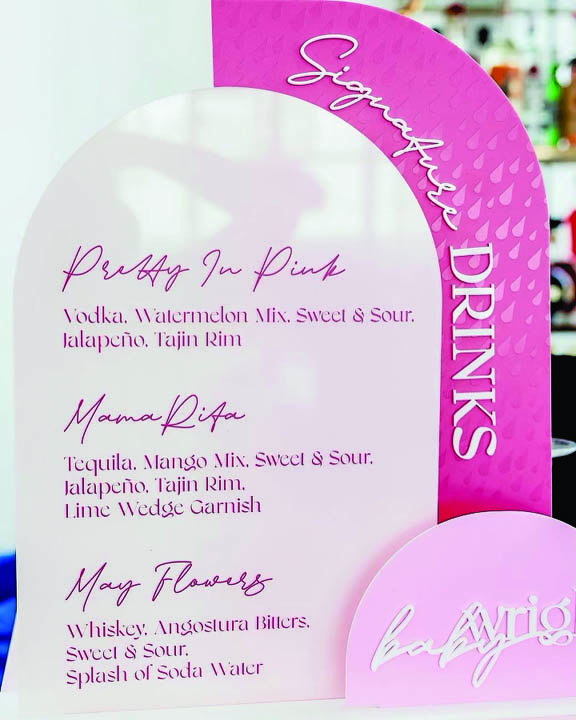 Signature
DRINKS
Pretty In Pink
Vodka, Watermelon Mix, Sweet & Sour,
Jalapeño, Tajin Rim
MamaRita
Tequila, Mango Mix, Sweet & Sour,
Jalapeño, Tajin Rim,
Lime Wedge Garnish
May Flowers
Whiskey, Angostura Bitters,
Sweet & Sour,
Splash of Soda Water
baby